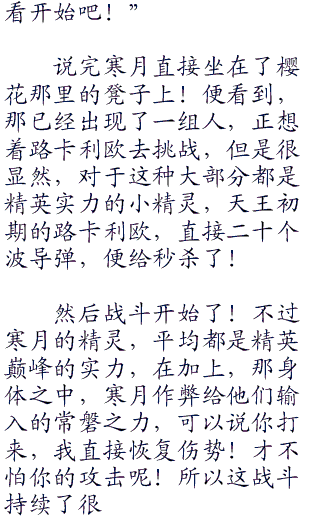 看开始吧！”
说完寒月直接坐在了樱
花那里的凳子上！便看到，
那已经出现了一组人，正想
着路卡利欧去挑战，但是很
显然，对于这种大部分都是
精英实力的小精灵，天王初
期的路卡利欧，直接二十个
波导弹，便给秒杀了！
然后战斗开始了！不过
寒月的精灵，平均都是精英
巅峰的实力，在加上，那身
体之中，寒月作弊给他们输
入的常磐之力，可以说你打
来，我直接恢复伤势！才不
怕你的攻击呢！所以这战斗
持续了很